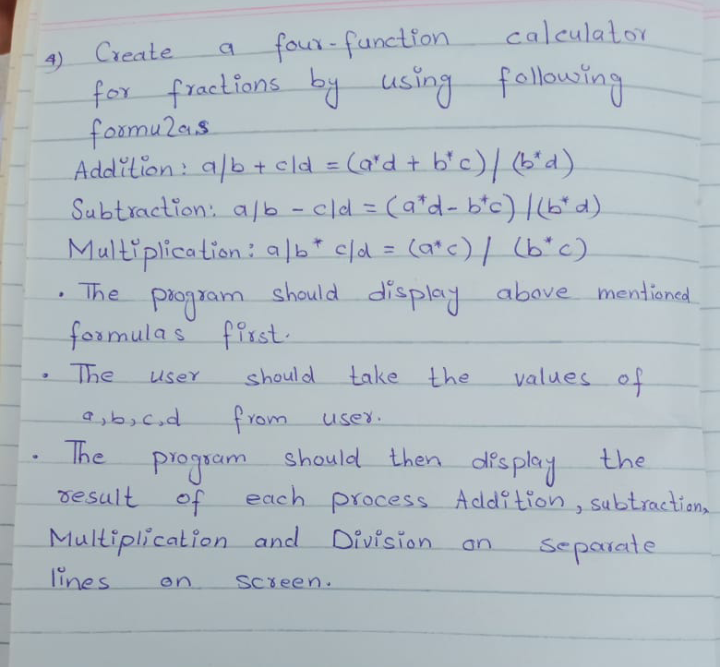 4) Create a four-function calculator
for fractions by using following
formulas
Addition: a/b + c/d = (a*d + b*c) / (b*d)
Subtraction: a/b - c/d = (a*d - b*c) / (b*d)
Multiplication: a/b * c/d = (a*c) / (b*c)
• The program should display above mentioned
formulas first.
• The user should take the values of
a,b,c,d from user.
• The program should then display the
result of each process Addition, subtraction,
Multiplication and Division on separate
lines on screen.